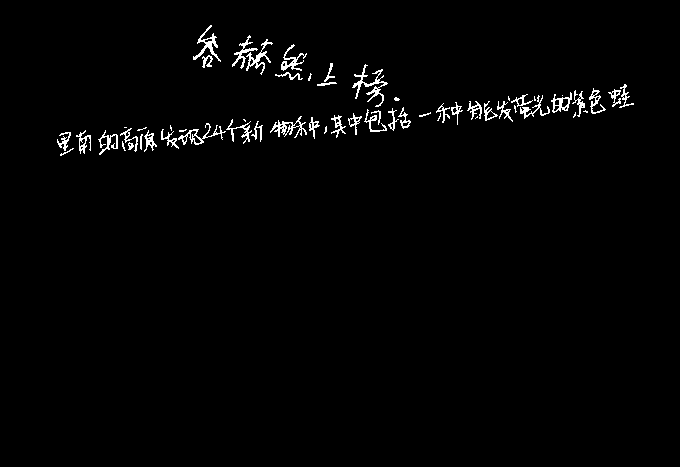 各赫然上榜.
里南的高原发现24个新物种,其中包括一种能发萤光的紫色蛙